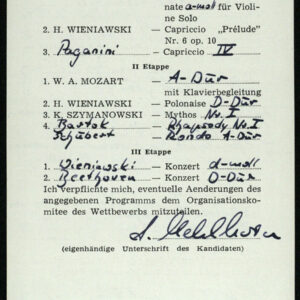 nate a-moll für Violi-
ne Solo
2. H. WIENIAWSKI — Capriccio „Prélude"
Nr. 6 op. 10
3. Paganini — Capriccio IV
II Etappe
1. W. A. MOZART — A-Dur
mit Klavierbegleitung
2. H. WIENIAWSKI — Polonaise D-Dur
3. K. SZYMANOWSKI — Mythos Nr. I
4. Bartok Rhapsody Nr. I
Schubert Rondo A-Dur
III Etappe
1. Wieniawski — Konzert d-moll
2. Beethoven — Konzert D-Dur
Ich verpflichte mich, eventuelle Aenderungen des
angegebenen Programms dem Organisationsko-
mitee des Wettbewerbs mitzuteilen.
(eigenhändige Unterschrift des Kandidaten)